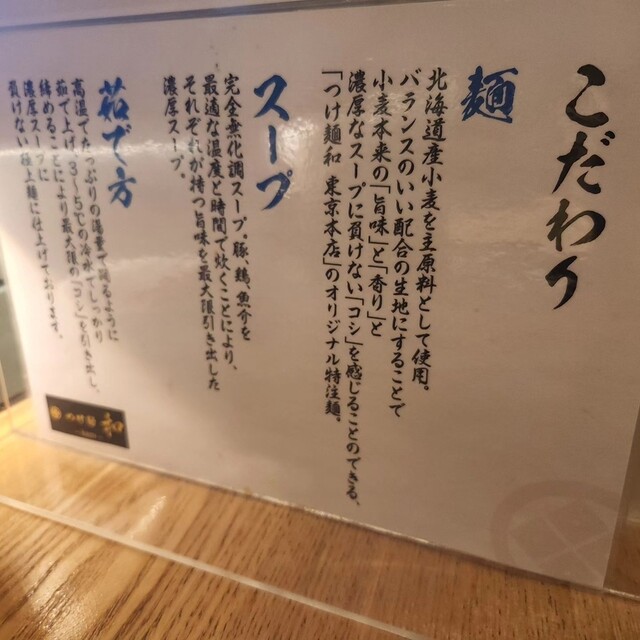 こだわり
麺
北海道産小麦を主原料として使用。
バランスのいい配合の生地にすることで
小麦本来の「旨味」と「香り」と
濃厚なスープに負けない「コシ」を感じることのできる、
「つけ麺 和 東京本店」のオリジナル特注麺。
スープ
完全無化調スープ。豚、鶏、魚介を
最適な温度と時間で炊くことにより、
それぞれが持つ旨味を最大限引き出した
濃厚スープ。
茹で方
高温でたっぷりの湯量で踊るように
茹で上げ、3〜5℃の冷水でしっかり
締めることにより最大限の「コシ」を引き出し、
濃厚スープに
負けない極上麺に仕上げております。
つけ麺 和